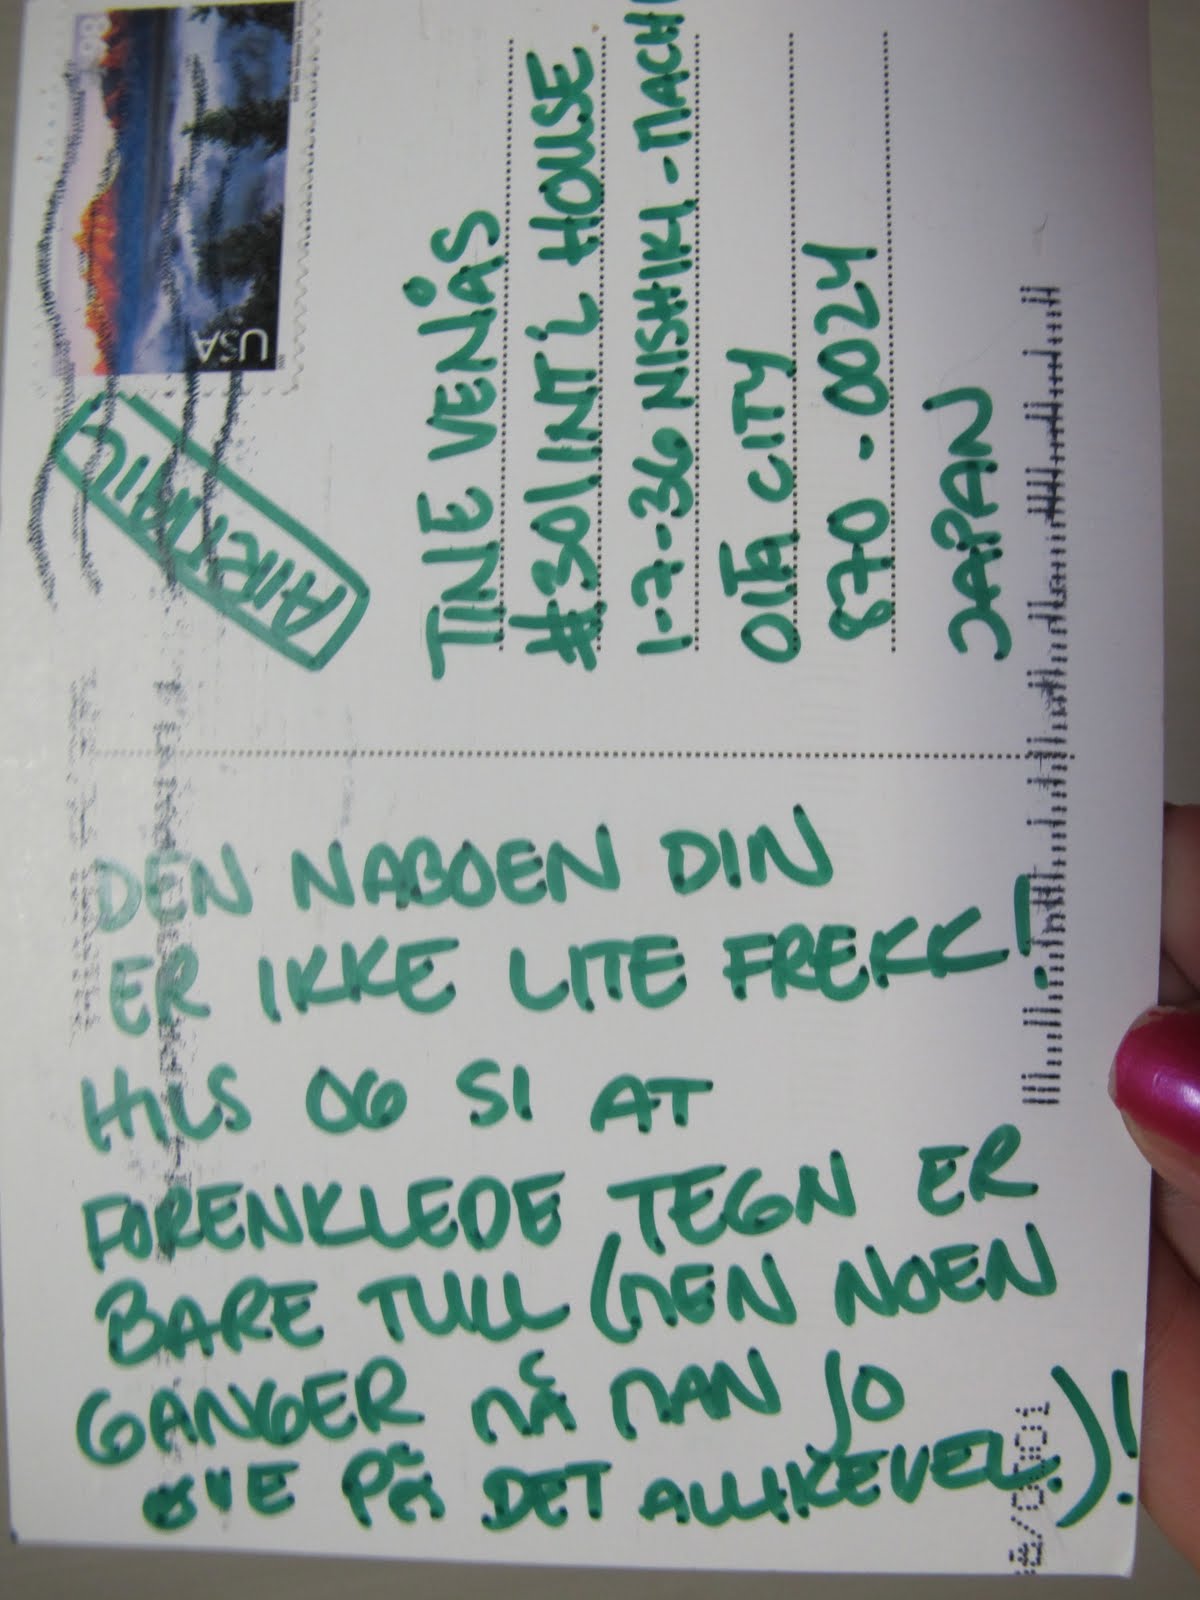 DEN NABOEN DIN
ER IKKE LITE FREKK!
HILS OG SI AT
FORENKLEDE TEGN ER
BARE TULL (MEN NOEN
GANGER MÅ MAN JO
ØVE PÅ DET ALLIKEVEL.)!
USA
98
AIRMAIL
TINE VENÅS
#301 INT'L HOUSE
1-7-36 NISHIKI-MACHI
OITA CITY
870-0024
JAPAN